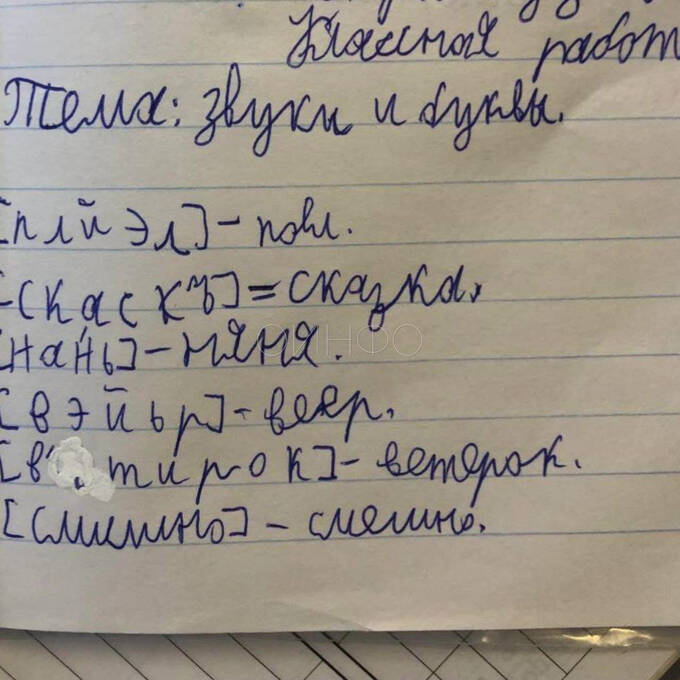 Классная работ
Тема: звуки и буквы.
[плйэл] -
[скаскъ] = сказка.
[нань] - няня.
[вэйьр] - веер.
[в' тирок] - ветерок.
[смишно] - смешно.
ОИНФО